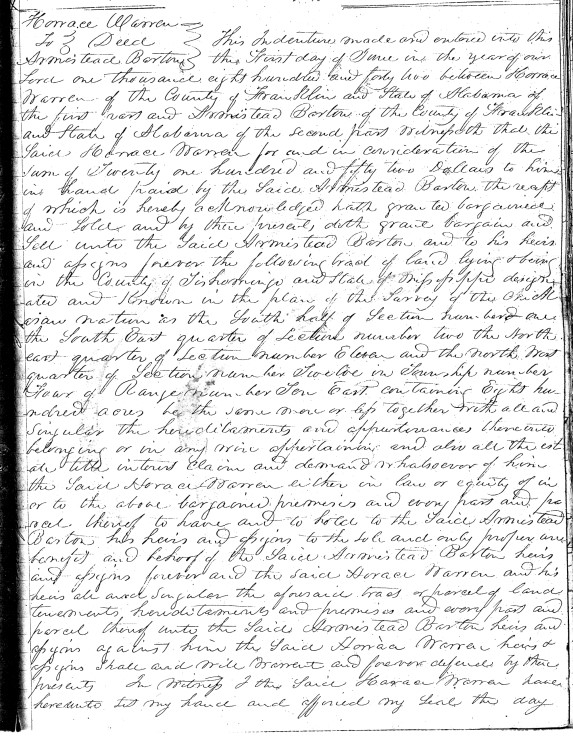 Horrace Warren
To } Deed This Indenture made and entered into this
Armistead Barton the first day of June in the year of our
Lord one thousand eight hundred and forty two between Horrace
Warren of the County of Franklin and State of Alabama of
the first part and Armistead Barton of the County of Franklin
and State of Alabama of the second part Witnesseth that the
Said Horrace Warren for and in consideration of the
Sum of Twenty one hundred and fifty two Dollars to him
in hand paid by the Said Armistead Barton the recpt
of which is hereby acknowledged hath granted bargained
and Sold and by these present doth grant bargain and
Sell unto the Said Armistead Barton and to his heirs
and assigns forever the following tract of land lying & being
in the County of Tishomingo and State of Mississippi design
ated and Known in the plan of the Survey of the
nation as the South half of Section number one
the South East quarter of Section number two the North
east quarter of Section number Eleven and the north West
quarter of Section number Twelve in Township number
Four of Range number Ten East containing Eight hu
ndred acres be the same more or less together with all and
Singular the hereditaments and appurtenances thereunto
belonging or in any wise appertaining and also all the est
ate title interest claim and demand whatsoever of him
the Said Horace Warren either in law or equity of in
or to the above bargained premises and every part and pa
rcel thereof to have and to hold to the Said Armistead
Barton his heirs and assigns to the sole and only proper use
benefit and behoof of the Said Armistead Barton heirs
and assigns forever and the said Horace Warren and his
heirs all and Singular the aforesaid tract or parcel of land
tenements, hereditaments and premises and every part and
parcel thereof unto the Said Armistead Barton heirs and
assigns against him the Said Horace Warren heirs &
assigns Shall and will Warrent and forever defend by these
presents In Witness I the Said Horace Warren have
hereunto set my hand and affixed my Seal the day